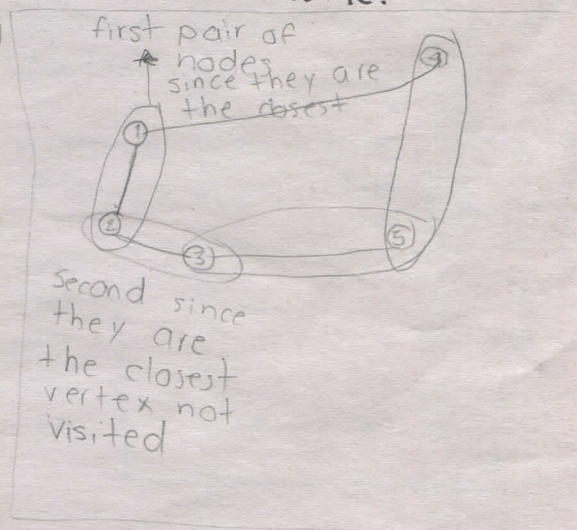 first pair of
nodes
since they are
the closest
1
4
2
3
5
second since
they are
the closest
vertex not
visited